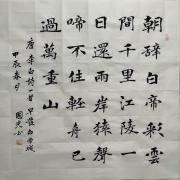 朝辭白帝彩雲
間千里江陵一
日還兩岸猿聲
啼不住輕舟已
過萬重山
唐李白詩一首早發白帝城
甲辰春月